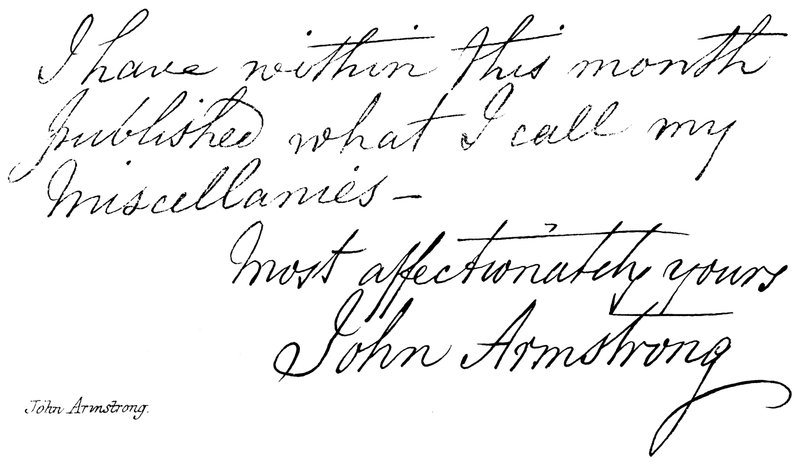 I have within this month
published what I call my
Miscellanies —
Most affectionately yours
John Armstrong
John Armstrong.